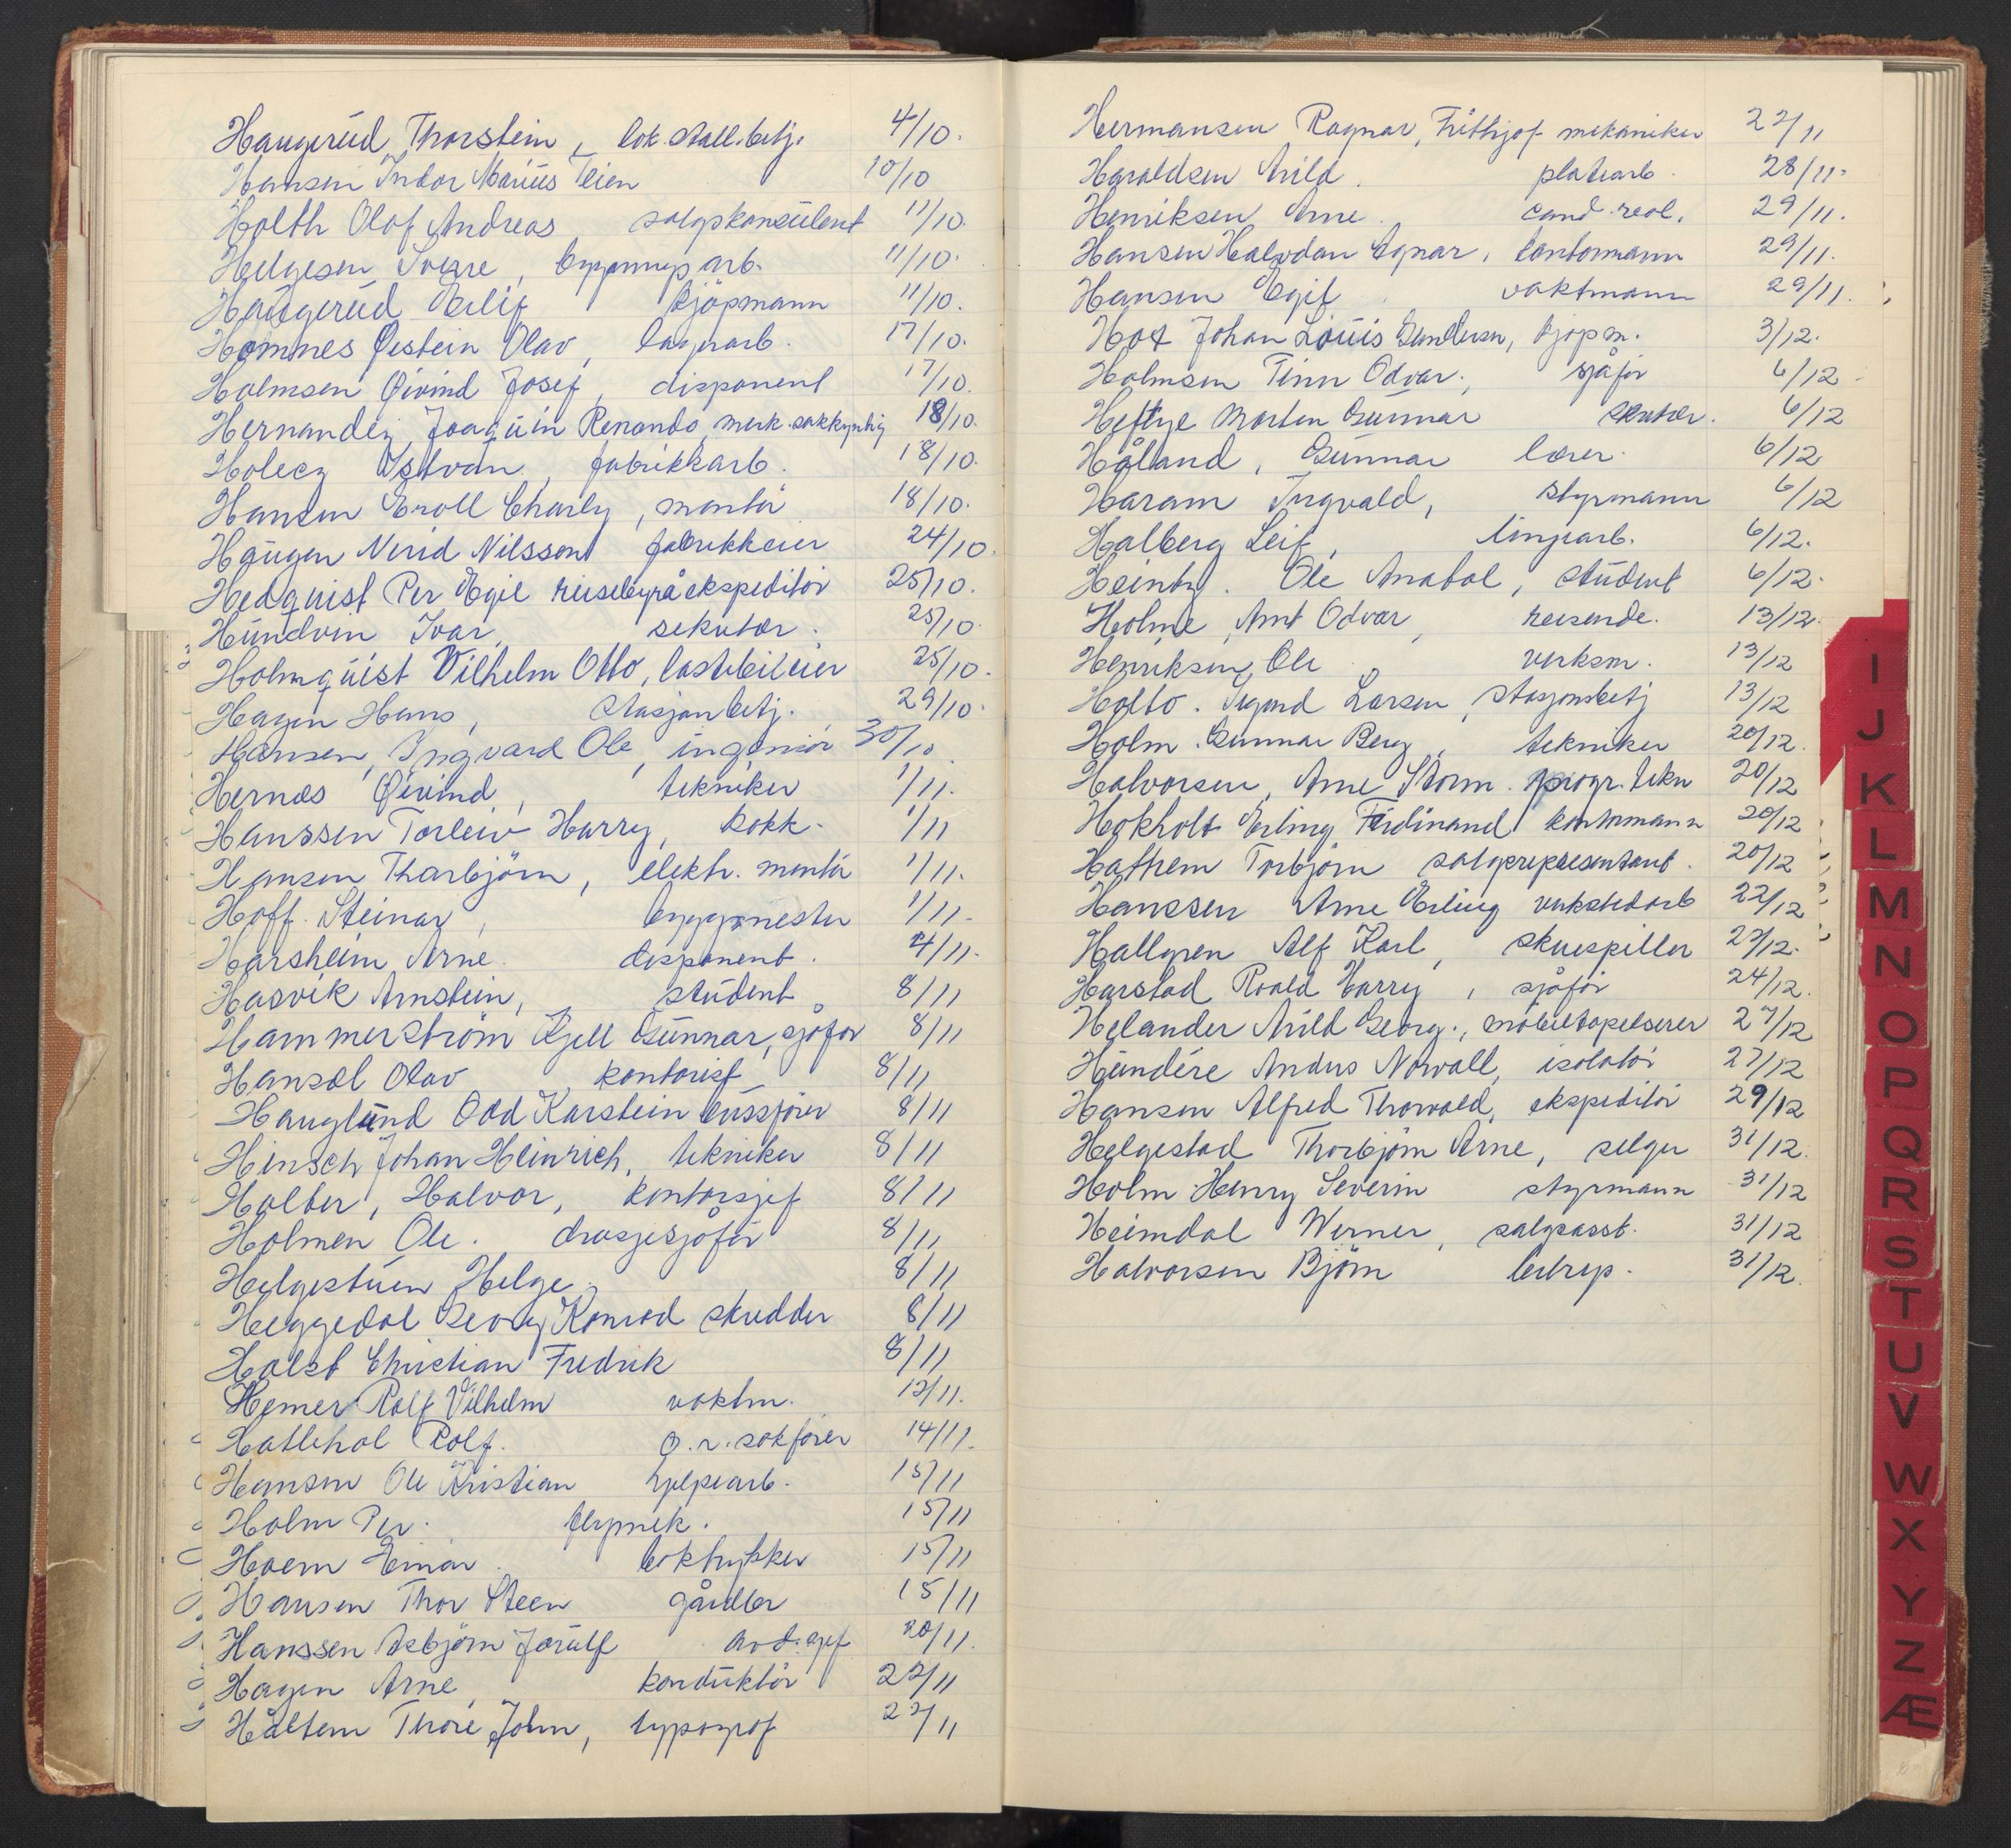 Haugerud Thorstein, lok.stall.betj. 4/10.
Hansen Indor Marius Teien 10/10
Holth Olaf Andreas, salgskonsulent 11/10.
Helgesen Sverre, bygnings arb. 11/10.
Haugerud Erlif kjöpmann 11/10.
Homnes Øistein Olav, lagerarb. 17/10.
Holmsen Øivind Josef, disponent 17/10.
Hernandez, Joaquin Renando, merk.sakkyndig 18/10.
Holecz Istvan, fabrikkarb. 18/10.
Hansen Eroll Charly, montör 18/10.
Haugen Nerid Nilsson fabrikkeier 24/10.
Hedquist Per Egil reisebyråekspeditör 25/10.
Hundvin Ivar, sekretær. 25/10.
Holmquist Vilhelm Otto, lastebileier 25/10.
Hagen Hans, stasjonbetj. 29/10.
Hansen, Ingvard Ole, ingeniör 30/10.
Hernæs Øivind, tekniker 1/11.
Hanssen Torleiv Harry, kokk. 1/11
Hansen Thorbjörn, elektr. montör 1/11.
Hoff. Steinar, byggmester 1/11.
Harsheim Arne. disponent. 4/11.
Hasvik Arnstein, student 8/11
Hammerström Kjell Gunnar, sjåför 8/11
Hansæl Olav kontorist 8/11
Hauglund Odd Karstein bussjåfør 8/11
Hinsch Johan Heinrich, tekniker 8/11
Holter, Halvor, kontorsjef 8/11
Holmen Ole. drosjesjåfør 8/11
Helgestuen Helge. 8/11
Heggedal Georg Konrad skredder 8/11
Holst Christian Fredrik 8/11
Hemer Rolf Vilhelm vaktm. 12/11.
Hatlehol Rolf. o.r.sakfører 14/11.
Hansen Ole Kristian hjelpearb. 15/11
Holm Per. flymek. 15/11
Hoem Einar. boktrykker 15/11
Hansen Thor Steen gårdbr 15/11
Hanssen Asbjörn Jørulf avd.sjef 20/11.
Hagen Arne, konduktör 22/11
Håltem Thore John, typograf 22/11
Hermansen Ragnar, Frithjof mekaniker 22/11
Haraldsen Arild. platearb. 28/11.
Henriksen Arne. cand.real. 29/11.
Hansen Halvdan Agnar, kontormann 29/11.
Hansen Egil vaktmann 29/11.
Hox Johan Louis Gundersen, kjöpm. 3/12.
Holmsen Finn Odvar. sjåför 6/12.
Heftye Morten Gunnar sekretær. 6/12
Håland, Gunnar lærer. 6/12
Haram Ingvald, styrmann 6/12
Halberg Leif, limjearb. 6/12.
Heintz. Ole Anatol, student 6/12.
Holme, Arnt Odvar, reisende. 13/12.
Henriksen, Ole verksm. 13/12
Holto. Sigurd Larsen, stasjonsbetj 13/12
Holm. Gunnar Berg, tekniker 20/12.
Halvorsen, Arne Storm. progr.tekn 20/12
Hokholt Erling Ferdinand kontormann 20/12
Hathem Torbjörn salgsrepresentant. 20/12
Hanssen Arne Erling verkstedarb 22/12
Hallgren Alf Karl, skuespiller 23/12.
Harstad Roald Harry, sjåför 24/12.
Helander Arild Georg., möbeltapetserer 27/12
Hundére Anders Norvall, isolatör 27/12
Hansen Alfred Thorvald, ekspeditör 29/12
Helgestad Thorbjörn Arne, selger 31/12.
Holm Henry Severin styrmann 31/12
Heimdal Werner, salgsasst. 31/12
Halvorsen Björn betrep. 31/12.
I
J
K
L
M
N
O
P
Q
R
S
T
U
V
W
X
Y
Z
Æ